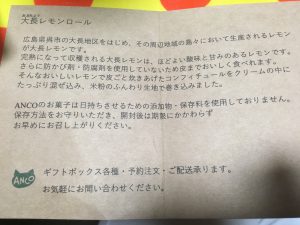 大長レモンロール
広島県呉市の大長地区をはじめ、その周辺地域の島々において生産されるレモン
が大長レモンです。
完熟になって収穫される大長レモンは、ほどよい酸味と甘みのあるレモンです。
さらに防かび剤・防腐剤を使用していないため皮までおいしく食べれます。
そんなおいしいレモンで皮ごと炊きあげたコンフィチュールをクリームの中に
たっぷり混ぜ込み、米粉のふんわり生地で巻き込みました。
ANCOのお菓子は日持ちさせるための添加物・保存料を使用しておりません。
保存方法をお守りいただき、開封後は期数にかかわらず
お早めにお召し上がりください。
ANCO
ギフトボックス各種・予約注文・ご配送承ります。
お気軽にお問い合わせください。